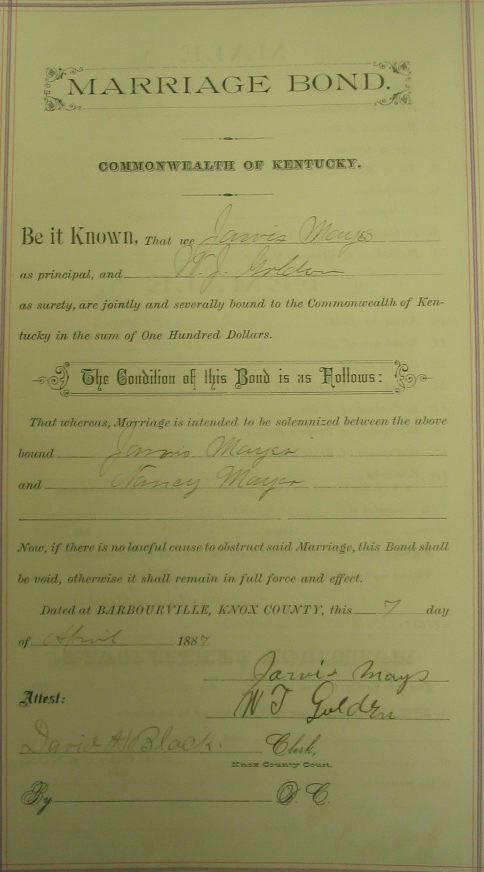 MARRIAGE BOND.
COMMONWEALTH OF KENTUCKY.
Be it Known, That we Jarvis Mayes
as principal, and W. J. Golden
as surety, are jointly and severally bound to the Commonwealth of Ken-
tucky in the sum of One Hundred Dollars.
The Condition of this Bond is as Follows:
That whereas, Marriage is intended to be solemnized between the above
bound Jarvis Mayes
and Nancy Mayes
Now, if there is no lawful cause to obstruct said Marriage, this Bond shall
be void, otherwise it shall remain in full force and effect.
Dated at BARBOURVILLE, KNOX COUNTY, this 7 day
of April 1887
Jarvis Mays
Attest: W T Golden
David A. Black. Clerk,
Knox County Court.
By D. C.